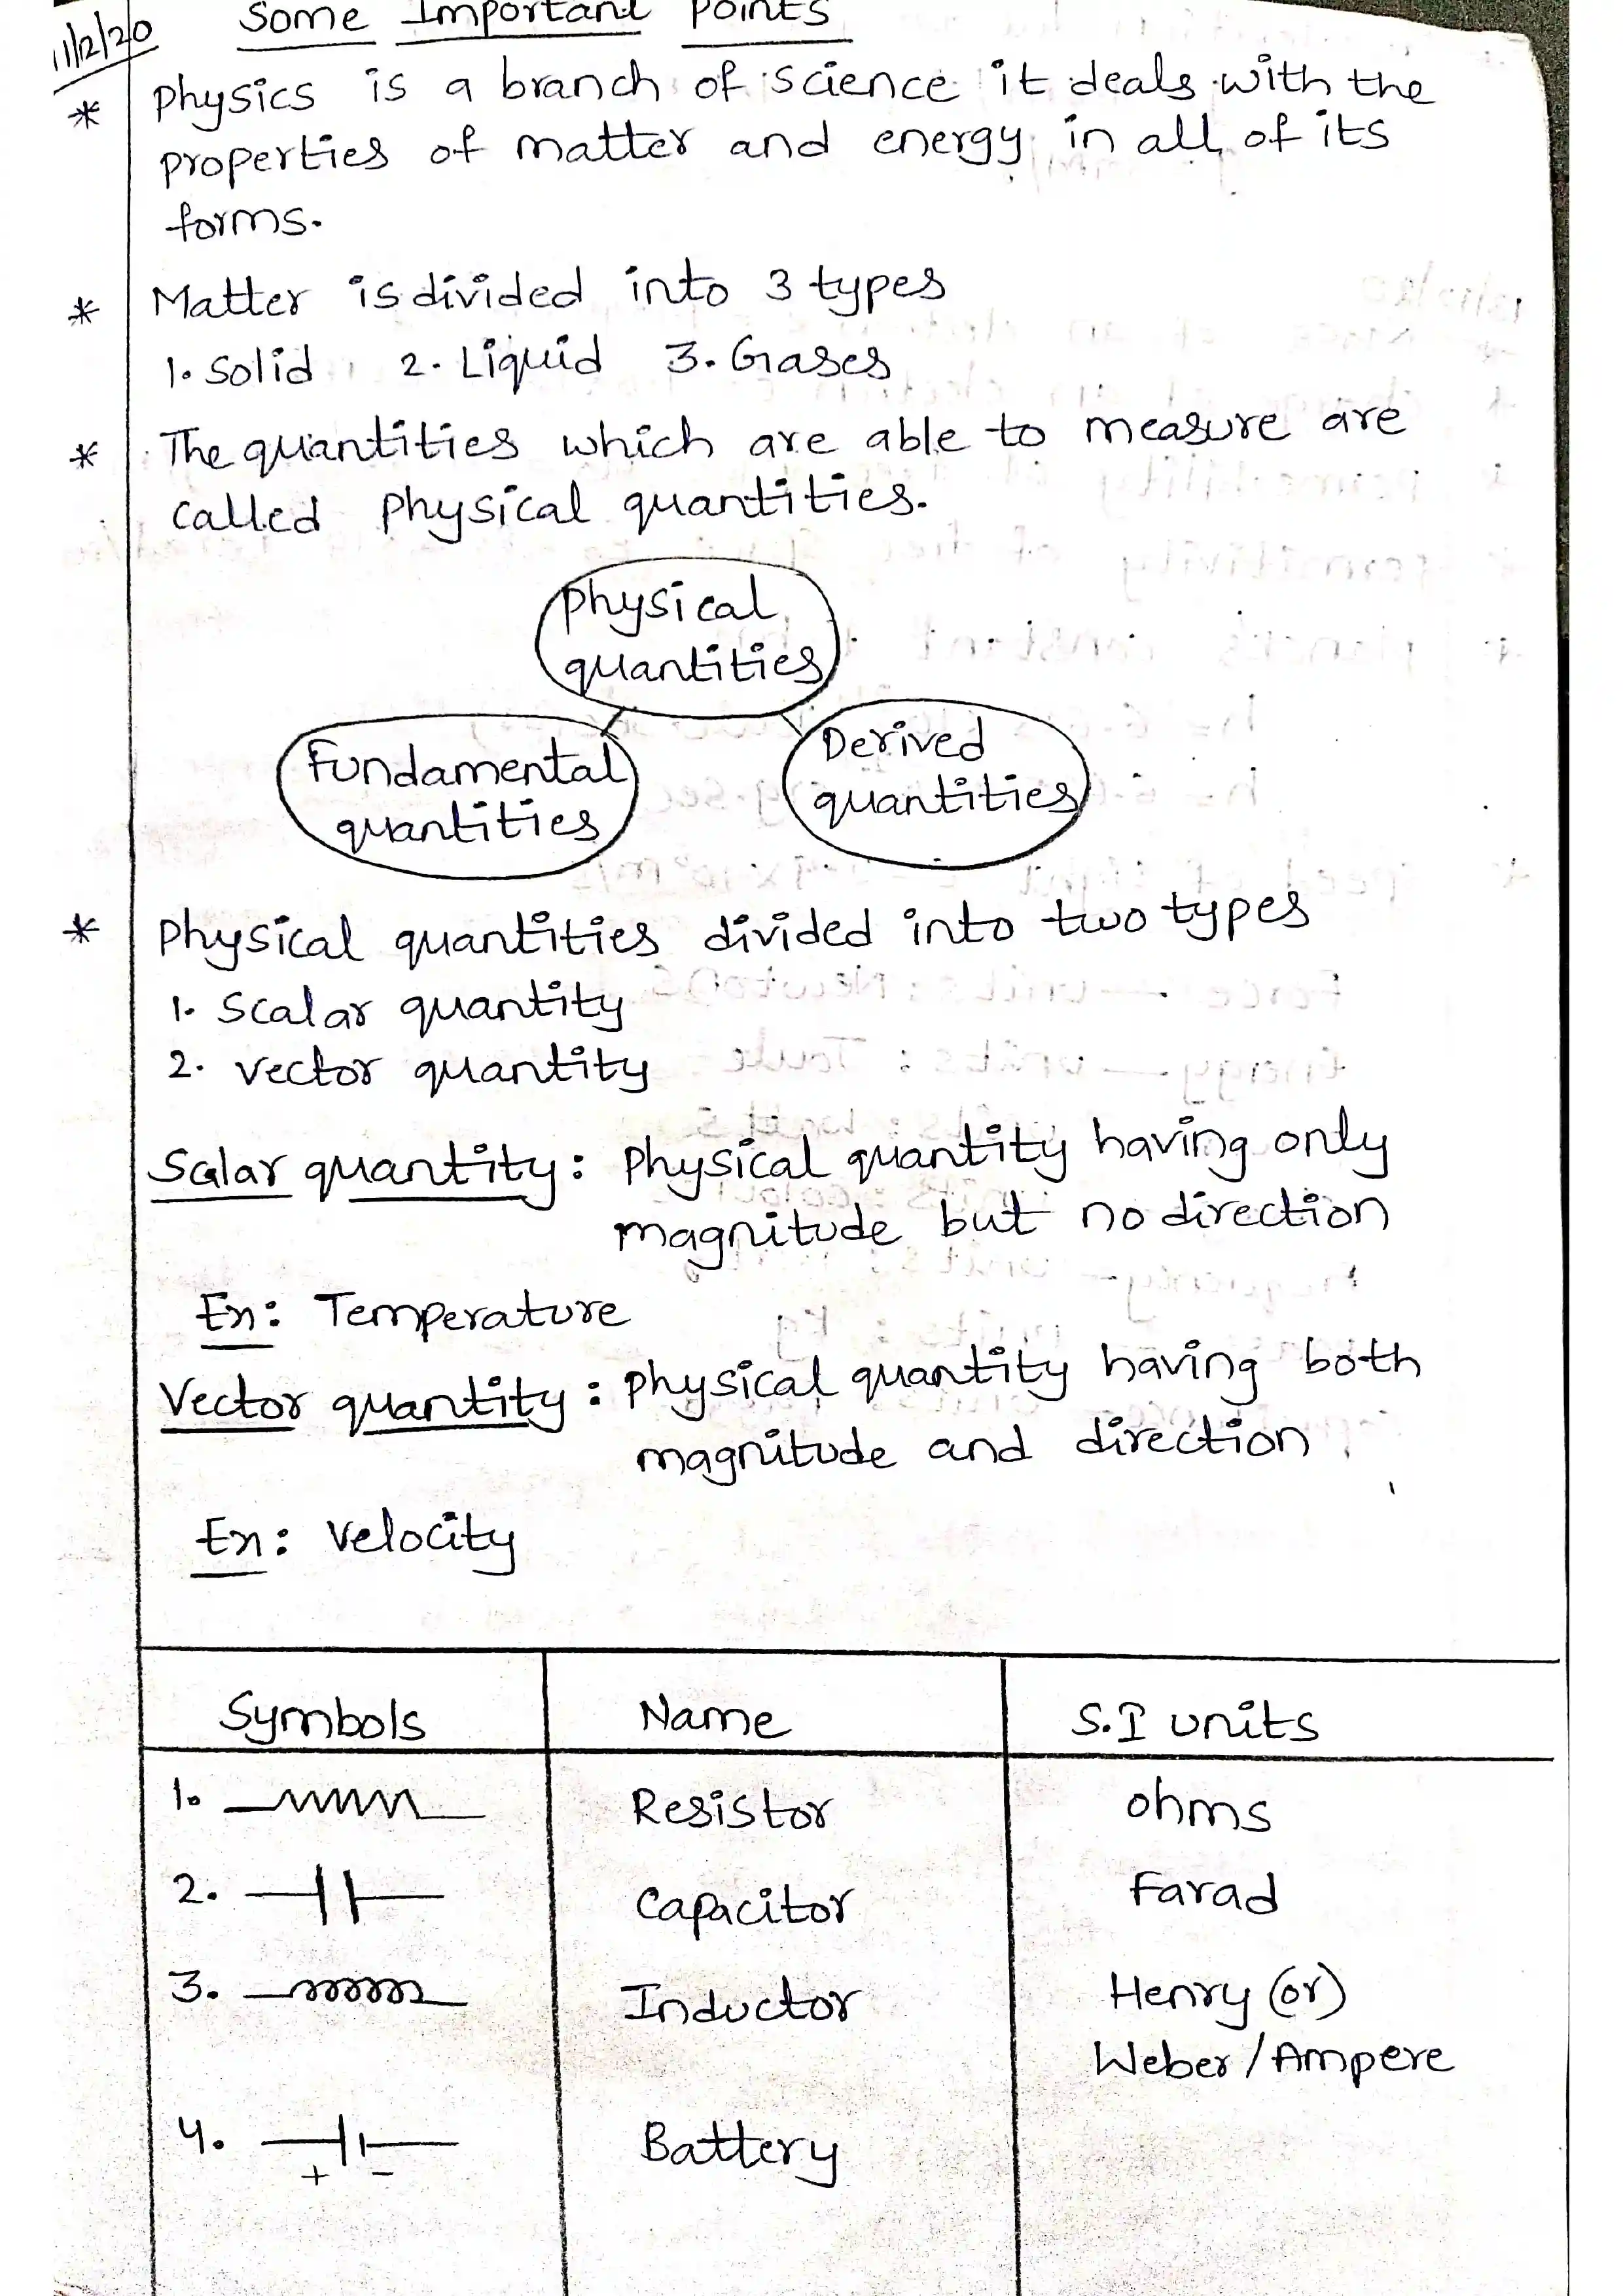 11/12/20 Some Important Points
* Physics is a branch of science it deals with the
properties of matter and energy in all of its
forms.
* Matter is divided into 3 types
1. Solid 2. Liquid 3. Gases
* The quantities which are able to measure are
called Physical quantities.
Physical
quantities
Fundamental
quantities
Derived
quantities
* Physical quantities divided into two types
1. Scalar quantity
2. Vector quantity
Scalar quantity: Physical quantity having only
magnitude but no direction
Ex: Temperature
Vector quantity: Physical quantity having both
magnitude and direction
Ex: Velocity
Symbols Name S.I units
1. Resistor ohms
2. Capacitor Farad
3. Inductor Henry (or)
Weber/Ampere
4. + - Battery